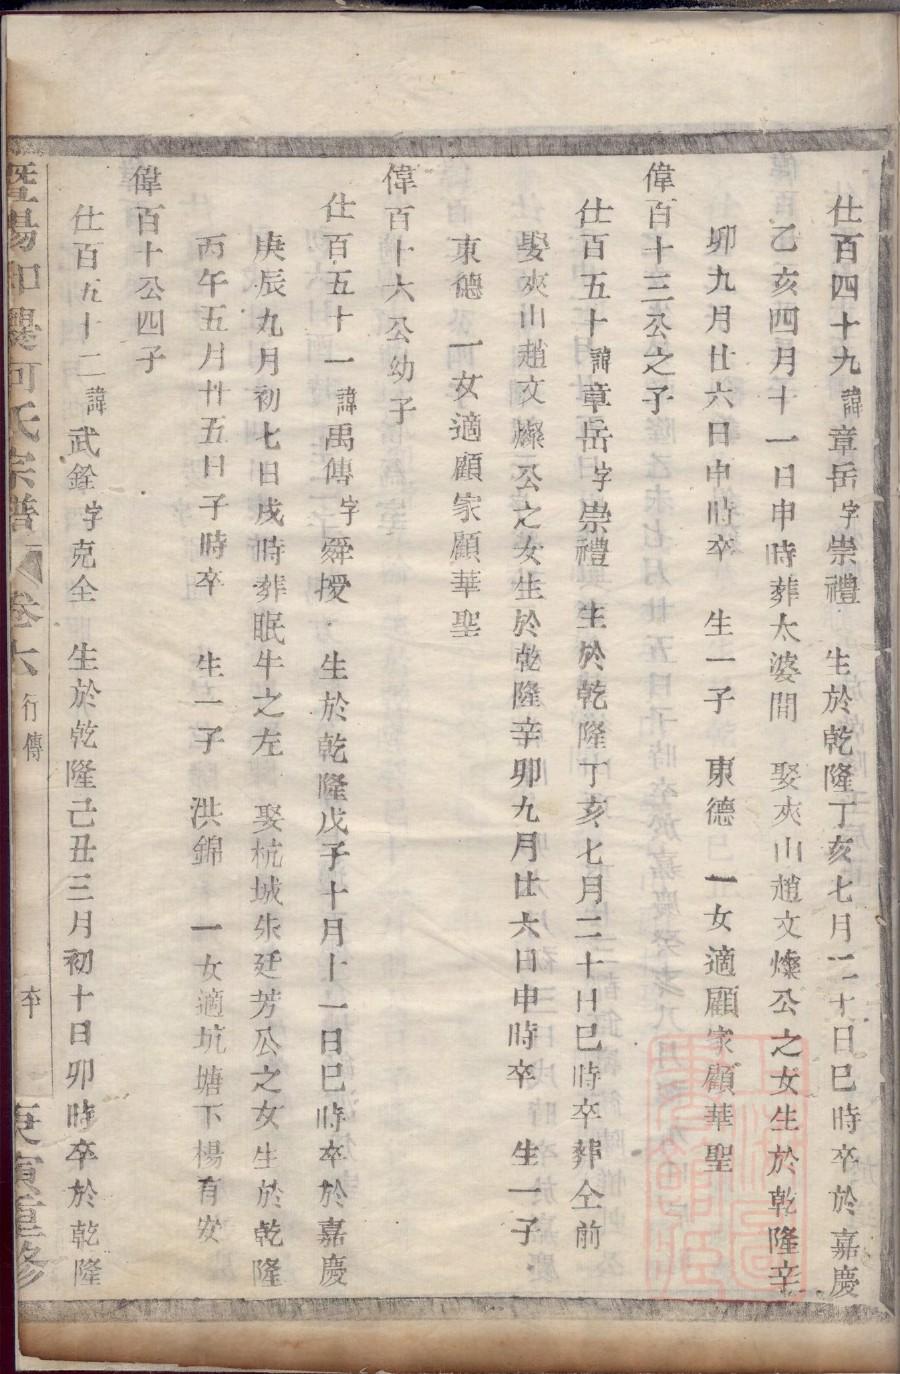 仕百四十九諱章岳字崇禮　生於乾隆丁亥七月二十日巳時卒於嘉慶
乙亥四月十一日申時葬太婆間　娶夾山趙文燦公之女生於乾隆辛
卯九月廿六日申時卒　生一子　東德　一女適顧家顧華聖
偉百十三公之子
仕百五十諱章岳字崇禮　生於乾隆丁亥七月二十日巳時卒葬仝前
娶夾山趙文燦公之女生於乾隆辛卯九月廿六日申時卒　生一子
東德　一女適顧家顧華聖
偉百十六公幼子
仕百五十一諱禹傳字舜授　生於乾隆戊子十月十一日巳時卒於嘉慶
庚辰九月初七日戌時葬眠牛之左　娶杭城朱廷芳公之女生於乾隆
丙午五月廿五日子時卒　生一子　洪錦　一女適坑塘下楊有安
偉百十公四子
仕百五十二諱武銓字克全　生於乾隆己丑三月初十日卯時卒於乾隆
暨陽和墅何氏宗譜　卷六　行傳　卒　庚寅重修